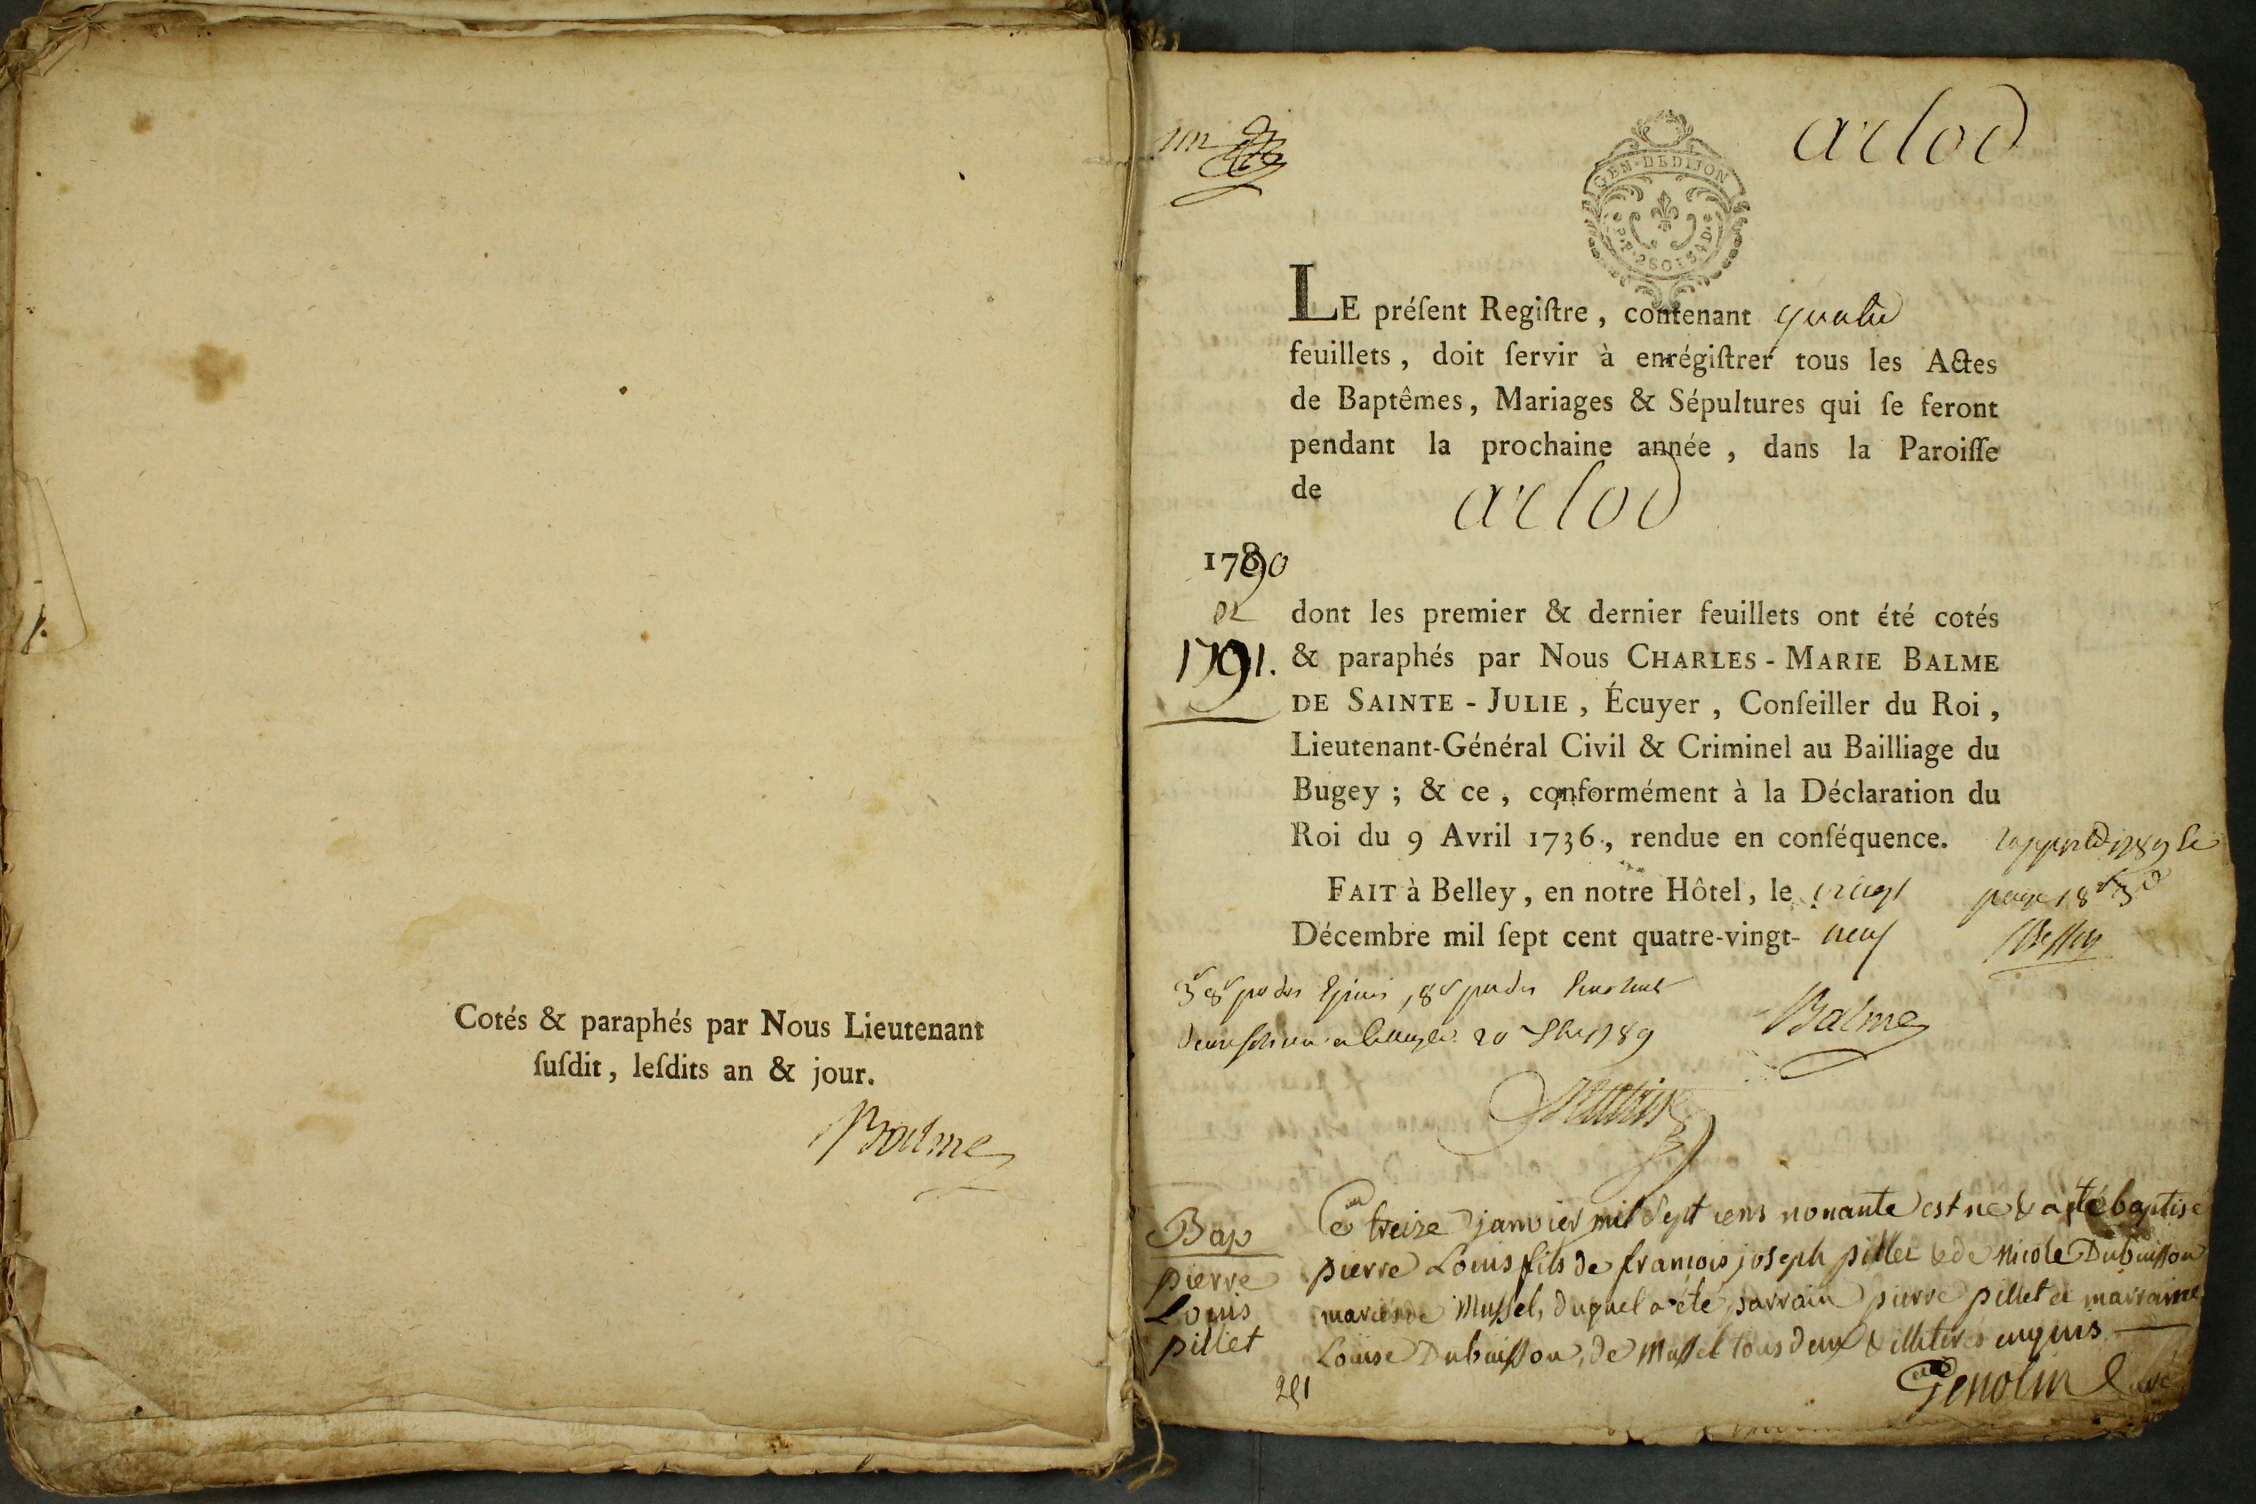 Cotés & paraphés par Nous Lieutenant
ſuſdit, leſdits an & jour.
Balme
un
arlod
GEN·DE DIJON
LE préſent Regiſtre, contenant quatre
feuillets, doit ſervir à enrégiſtrer tous les Actes
de Baptêmes, Mariages & Sépultures qui ſe feront
pendant la prochaine année, dans la Paroiſſe
de arlod
1790
et
1791.
dont les premier & dernier feuillets ont été cotés
& paraphés par Nous CHARLES-MARIE BALME
DE SAINTE-JULIE, Écuyer, Conſeiller du Roi,
Lieutenant-Général Civil & Criminel au Bailliage du
Bugey; & ce, conformément à la Déclaration du
Roi du 9 Avril 1736, rendue en conſéquence.
FAIT à Belley, en notre Hôtel, le vingt
Décembre mil ſept cent quatre-vingt-neuf
Balme
20 1789
Bap
pierre
Louis
pillet
Le treize janvier mil sept cens nonante est ne & a été baptise
pierre Louis fils de francois joseph pillet & de Nicole Dubuisson
mariés de Mussel, duquel a été parrain pierre pillet et marraine
Louise Dubuisson, de Mussel tous deux illiteres enquis
Genolin Curé
291